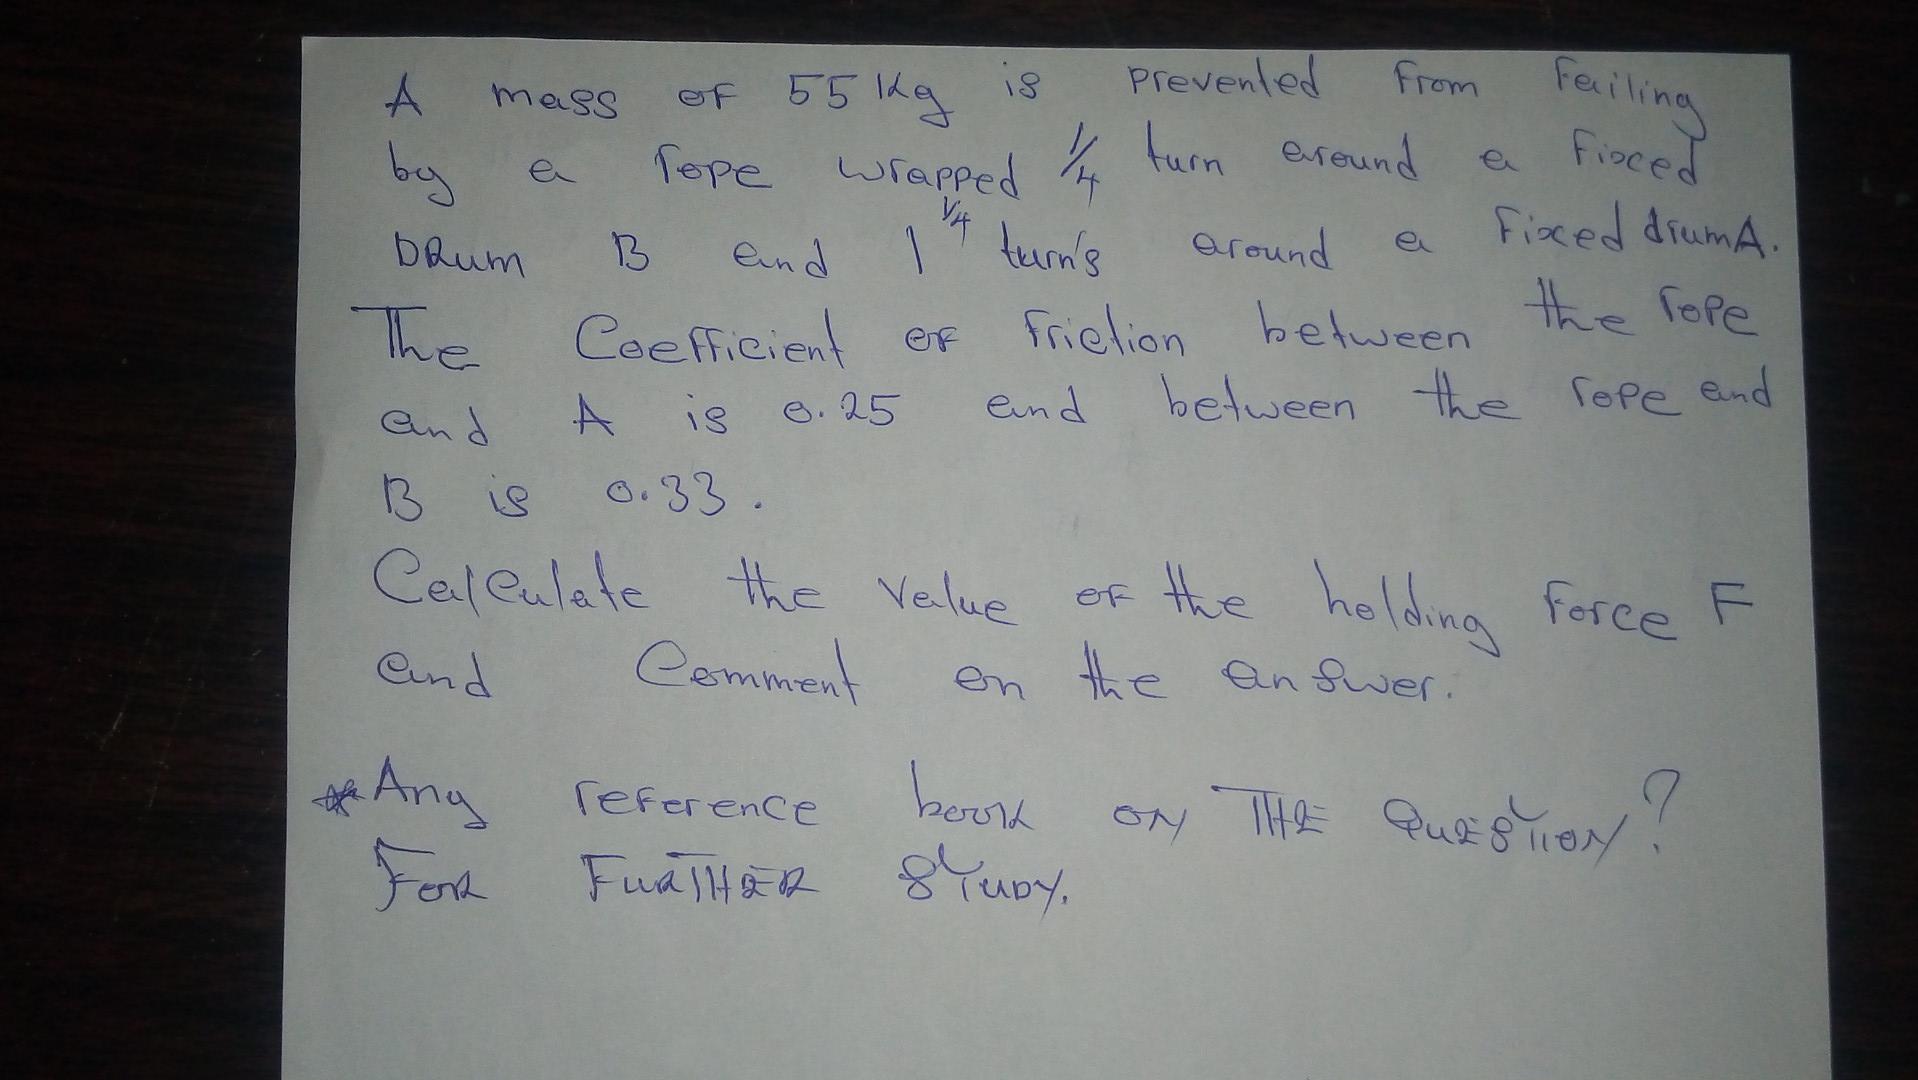 A mass of 55 Kg is prevented from falling
by a rope wrapped 1/4 turn around a fixed
DRum B and 1 1/4 turn's around a fixed drum A.
The Coefficient of friction between the rope
and A is 0.25 and between the rope and
B is 0.33.
Calculate the value of the holding force F
and Comment on the answer.
* Any reference book ON THE QUESTION?
FOR FURTHER STUDY.